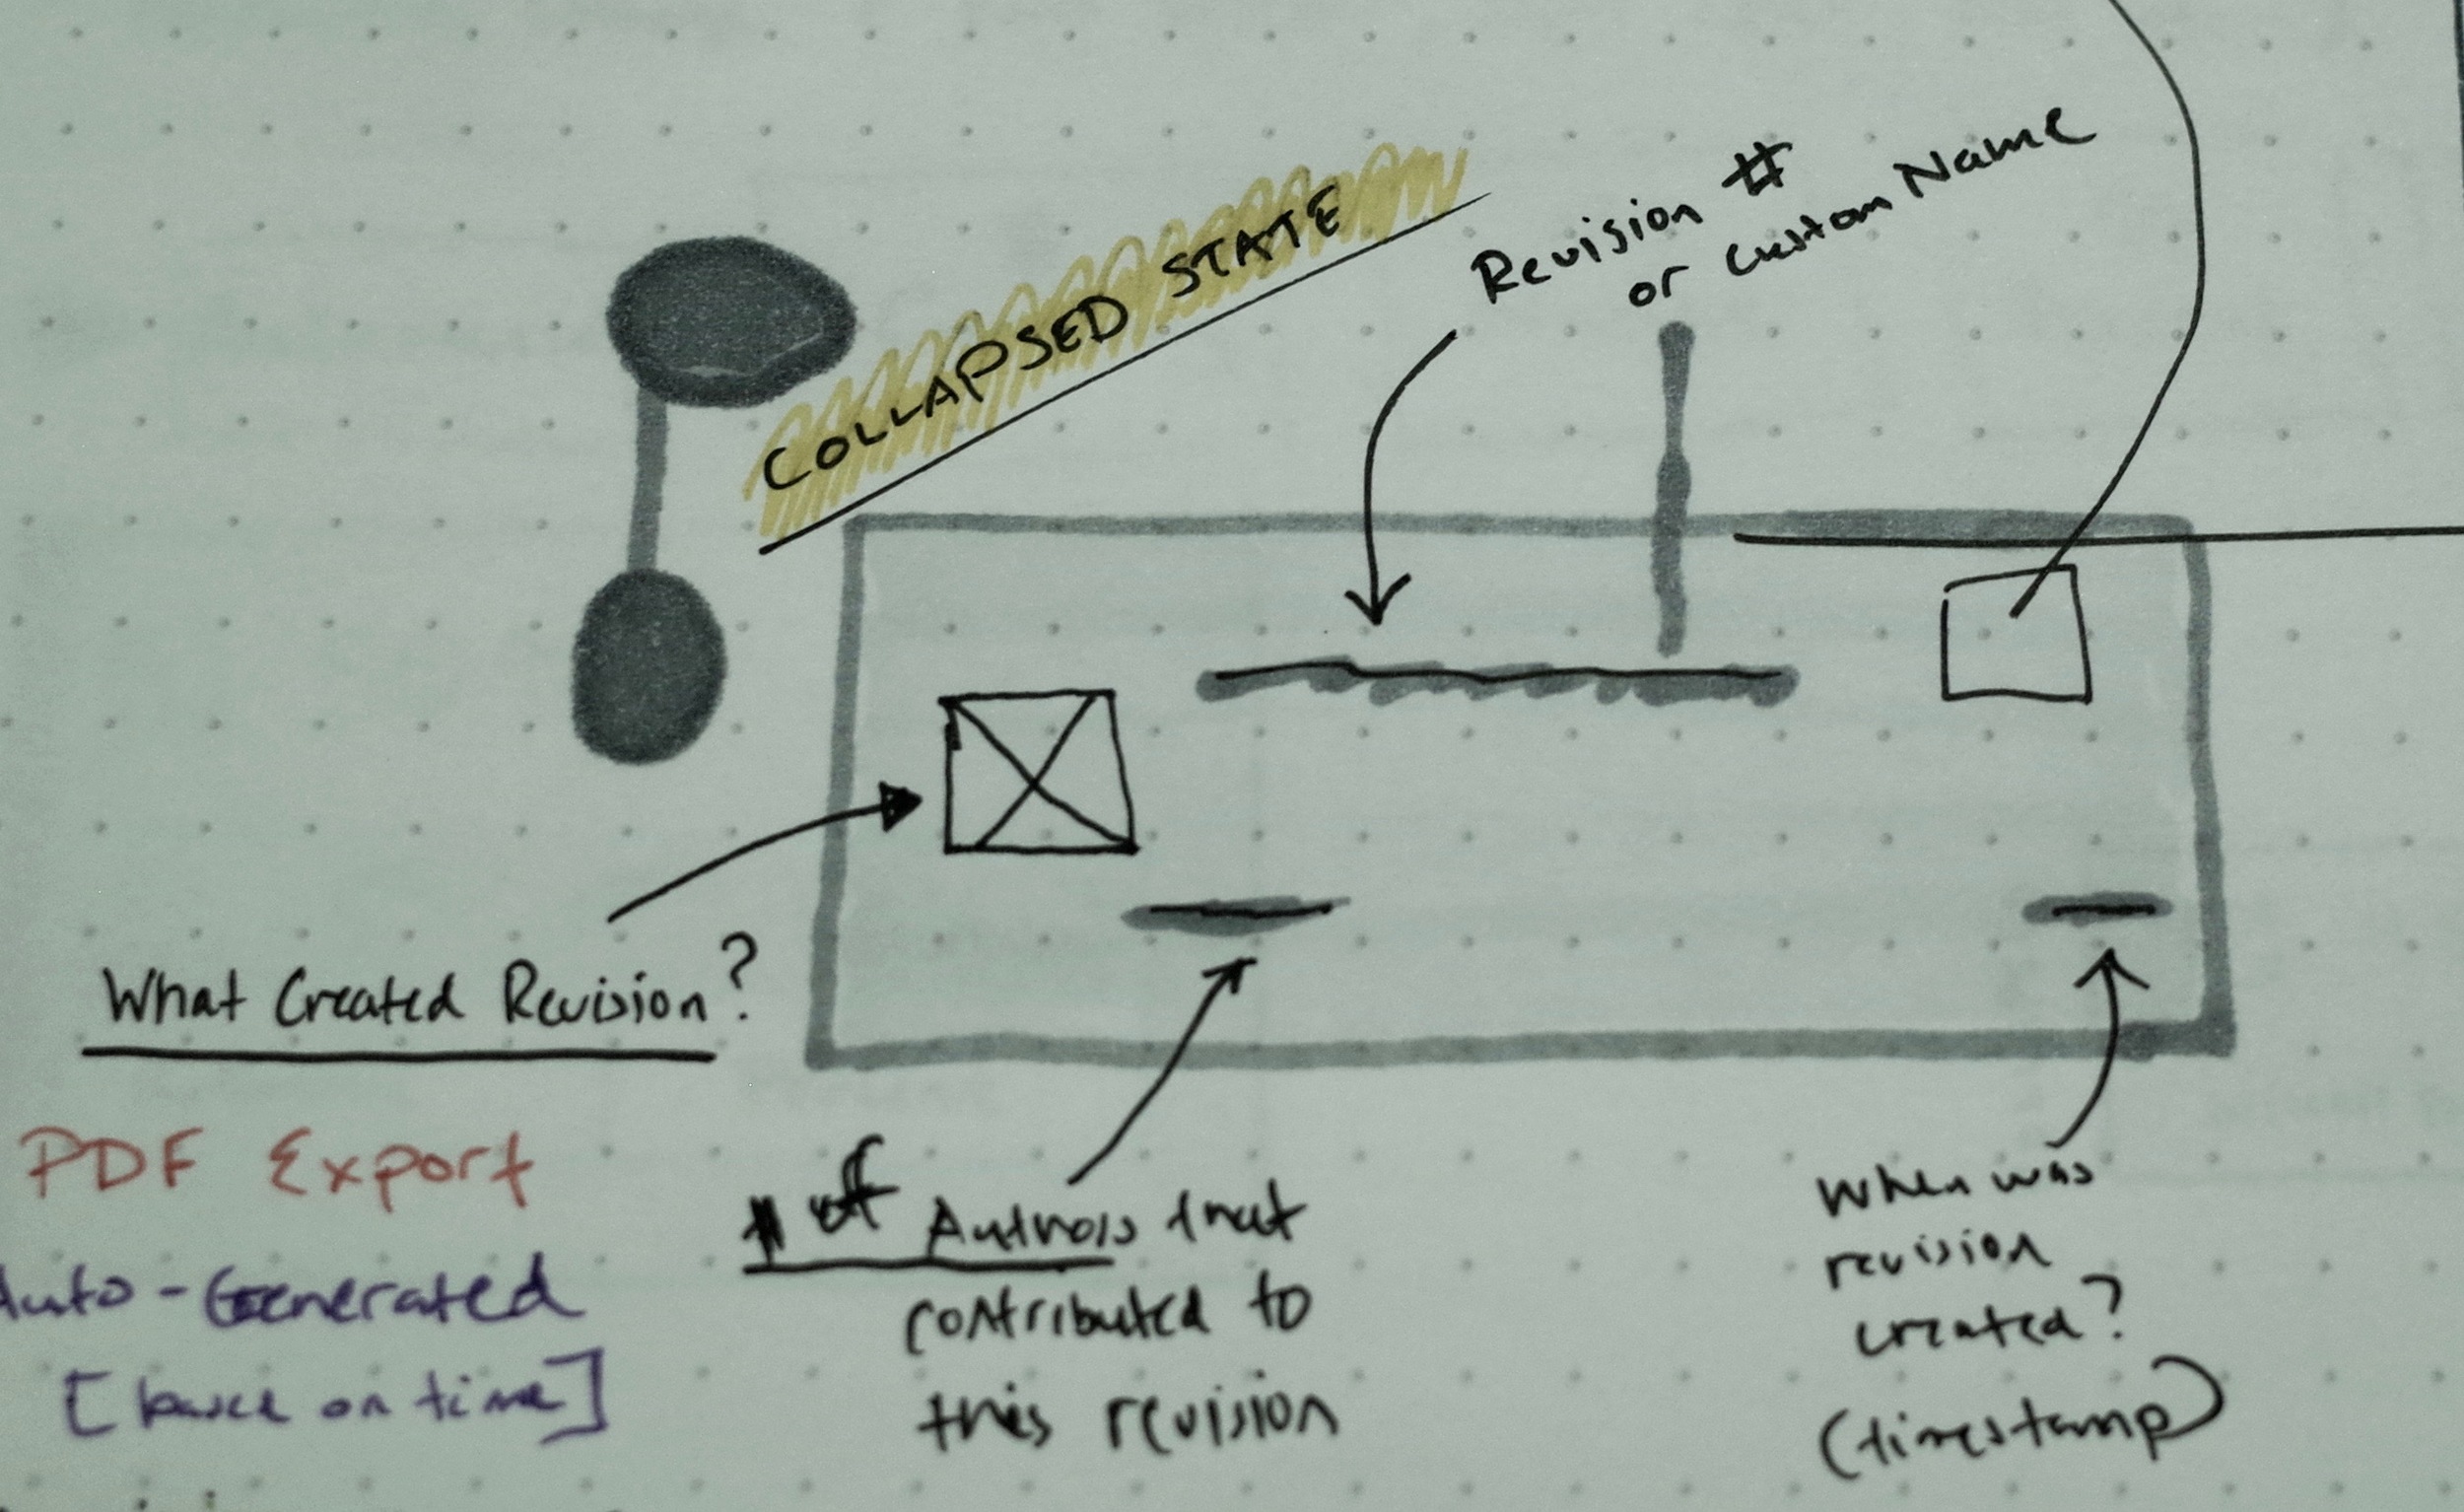 COLLAPSED STATE
Revision #
or Custom Name
What Created Revision?
PDF Export
Auto-Generated
[base on time]
# of Authors that
contributed to
this revision
When was
revision
created?
(timestamp)